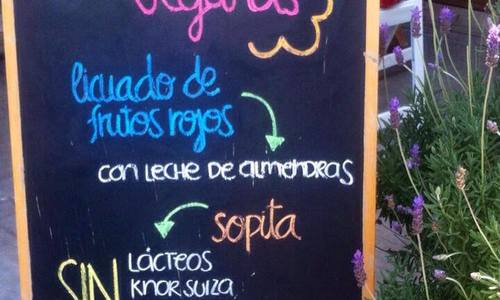 licuado de
frutos rojos
con leche de almendras
sopita
SIN LÁCTEOS
KNOR SUIZA